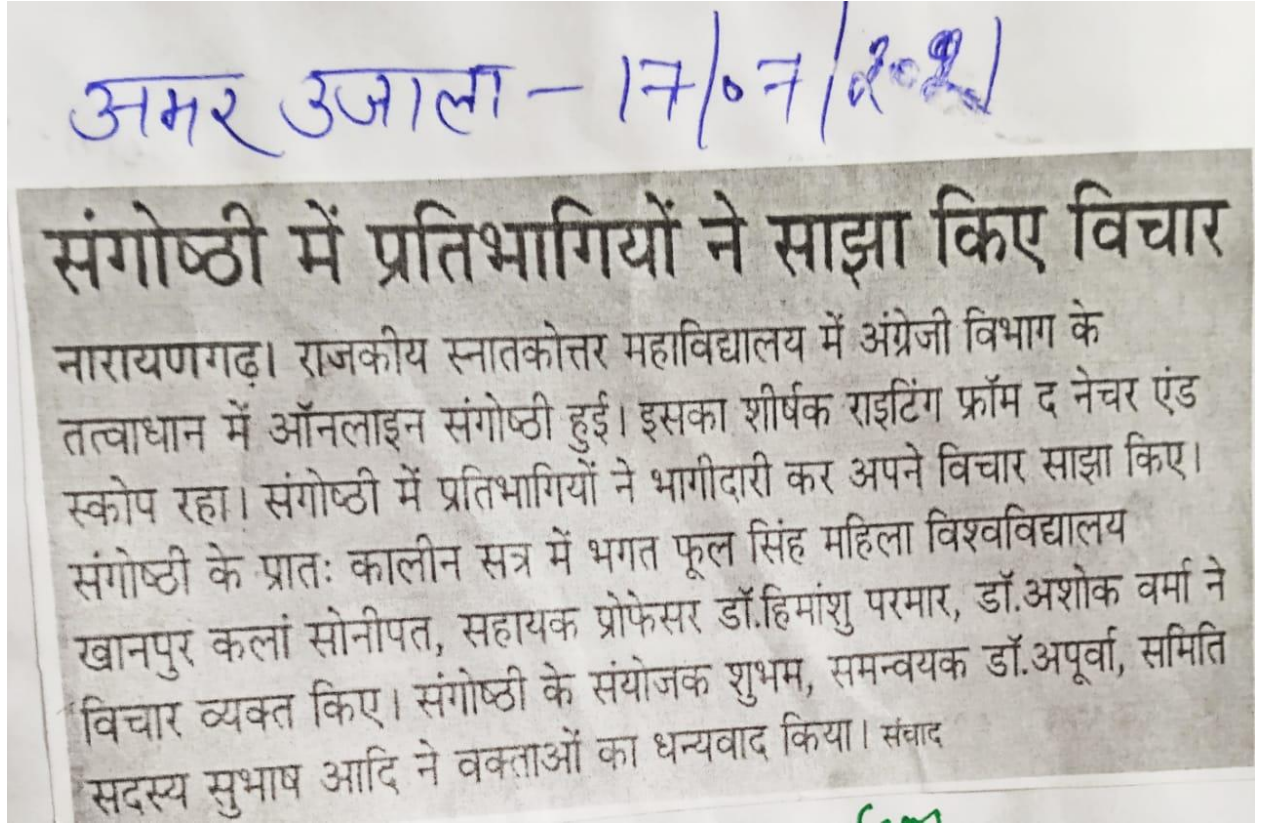 अमर उजाला - 17/07/2021
संगोष्ठी में प्रतिभागियों ने साझा किए विचार
नारायणगढ़। राजकीय स्नातकोत्तर महाविद्यालय में अंग्रेजी विभाग के
तत्वाधान में ऑनलाइन संगोष्ठी हुई। इसका शीर्षक राइटिंग फ्रॉम द नेचर एंड
स्कोप रहा। संगोष्ठी में प्रतिभागियों ने भागीदारी कर अपने विचार साझा किए।
संगोष्ठी के प्रातः कालीन सत्र में भगत फूल सिंह महिला विश्वविद्यालय
खानपुर कलां सोनीपत, सहायक प्रोफेसर डॉ.हिमांशु परमार, डॉ.अशोक वर्मा ने
विचार व्यक्त किए। संगोष्ठी के संयोजक शुभम, समन्वयक डॉ.अपूर्वा, समिति
सदस्य सुभाष आदि ने वक्ताओं का धन्यवाद किया। संवाद